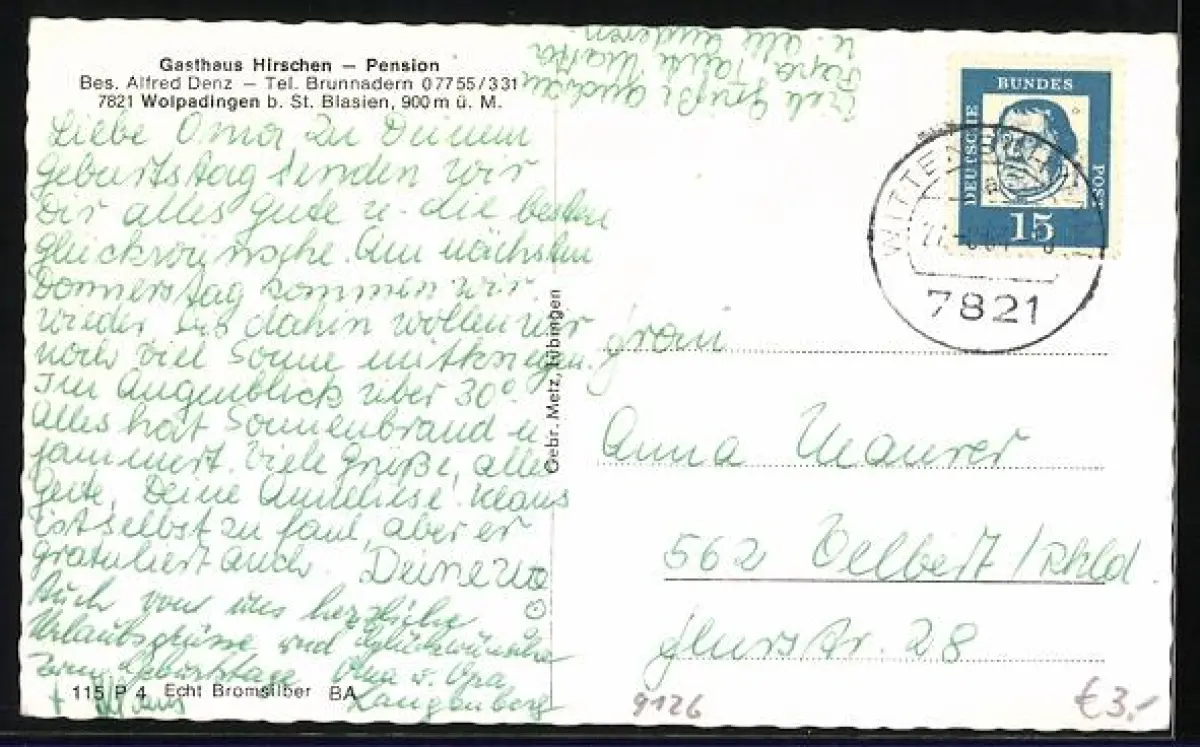 Gasthaus Hirschen – Pension
Bes. Alfred Denz – Tel. Brunnadern 07755/331
7821 Wolpadingen b. St. Blasien, 900 m ü. M.
Liebe Oma, zu Deinem
Geburtstag senden wir
Dir alles gute u. die besten
Glückwünsche. Am nächsten
Donnerstag kommen wir
wieder bis dahin wollen wir
noch viel Sonne mitkriegen.
Im Augenblick über 30°.
Alles hat Sonnenbrand u.
jammert. Viele Grüße, alles
Gute, Deine Anneliese. Klaus
ist selbst zu faul, aber er
gratuliert auch. Deine
Auch von uns herzliche
Urlaubsgrüsse und Glückwünsche
zum Geburtstage Oma u. Opa
Langenberg
115 P 4 Echt Bromsilber BA
Viele Grüße an
Papa Tante Martha
u. alle anderen
Gebr. Metz, Tübingen
DEUTSCHE
BUNDES
POST
15
7821
Frau
Anna Maurer
562 Velbert/Rhld
Flurstr. 28
9126
€ 3.-